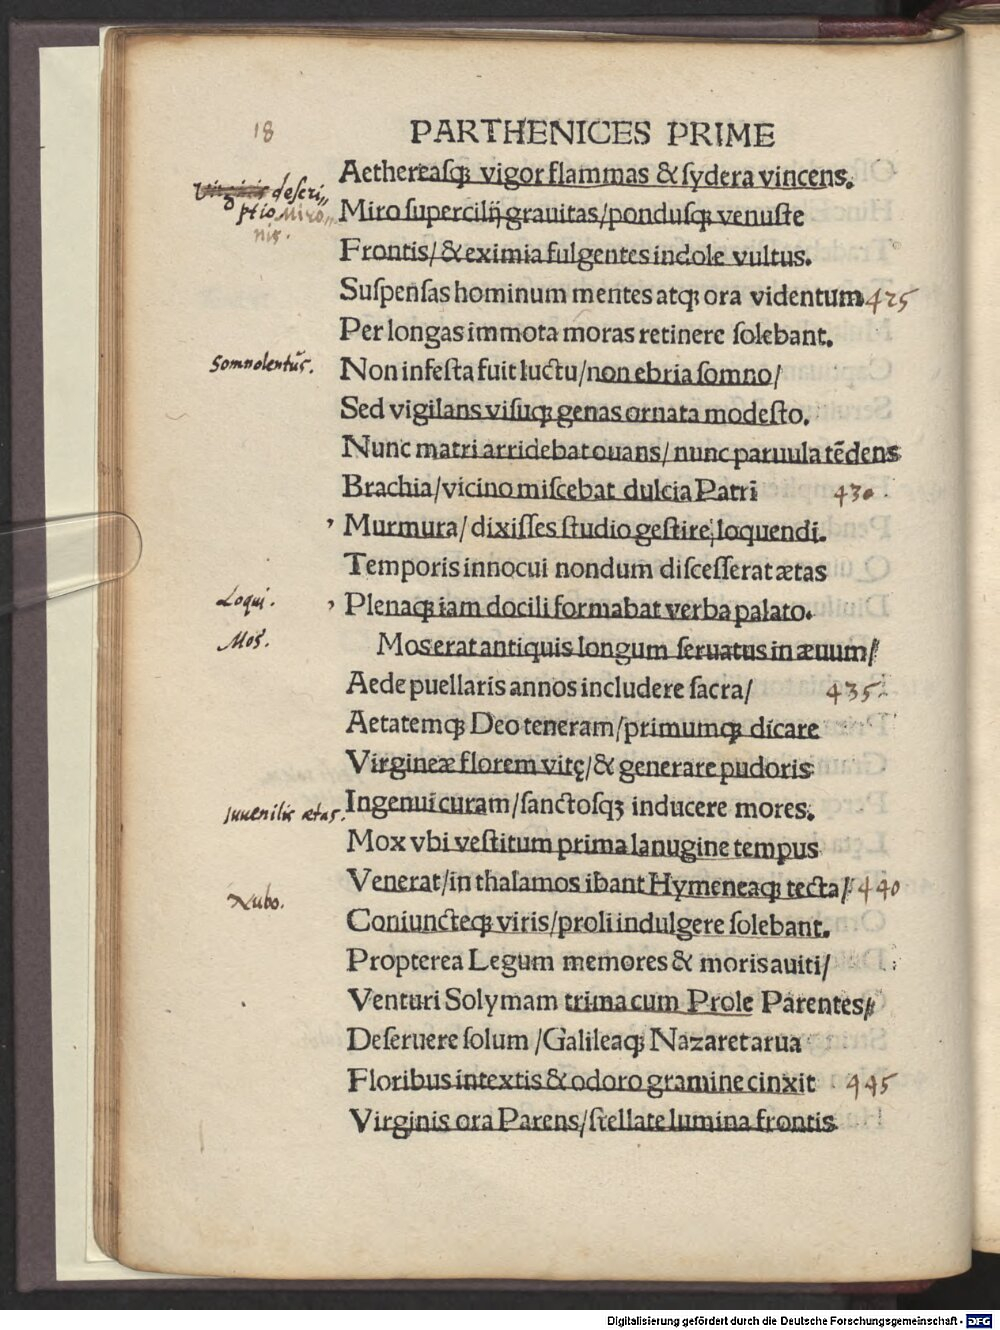 18
PARTHENICES PRIME
Aethereasqꝫ vigor flammas & ſydera vincens.
deſcri„
ptio Miro„
nis.
Miro ſupercilij grauitas/ponduſqꝫ venuſte
Frontis/& eximia fulgentes indole vultus.
Suſpenſas hominum mentes atqꝫ ora videntum 425
Per longas immota moras retinere ſolebant.
Somnolentũs.
Non infeſta fuit luctu/non ebria ſomno/
Sed vigilans viſuqꝫ genas ornata modeſto.
Nunc matri arridebat ouans/nunc paruula tẽdens
Brachia/vicino miſcebat dulcia Patri 430
Murmura/dixiſſes ſtudio geſtire loquendi.
Temporis innocui nondum diſceſſerat ætas
Loqui.
Plenaqꝫ iam docili formabat verba palato.
Mos.
Mos erat antiquis longum ſeruatus in æuum/
Aede puellaris annos includere ſacra/ 435
Aetatemqꝫ Deo teneram/primumqꝫ dicare
Virgineæ florem vitę/& generare pudoris
Iuuenilis ætas.
Ingenui curam/ſanctoſqꝫ inducere mores.
Mox vbi veſtitum prima lanugine tempus
Venerat/in thalamos ibant Hymeneaqꝫ tecta/ 440
Nubo.
Coniuncteqꝫ viris/proli indulgere ſolebant.
Propterea Legum memores & moris auiti/
Venturi Solymam trima cum Prole Parentes/
Deſeruere ſolum /Galileaqꝫ Nazaret arua
Floribus intextis & odoro gramine cinxit 445
Virginis ora Parens/ſtellate lumina frontis
Digitalisierung gefördert durch die Deutsche Forschungsgemeinschaft - DFG